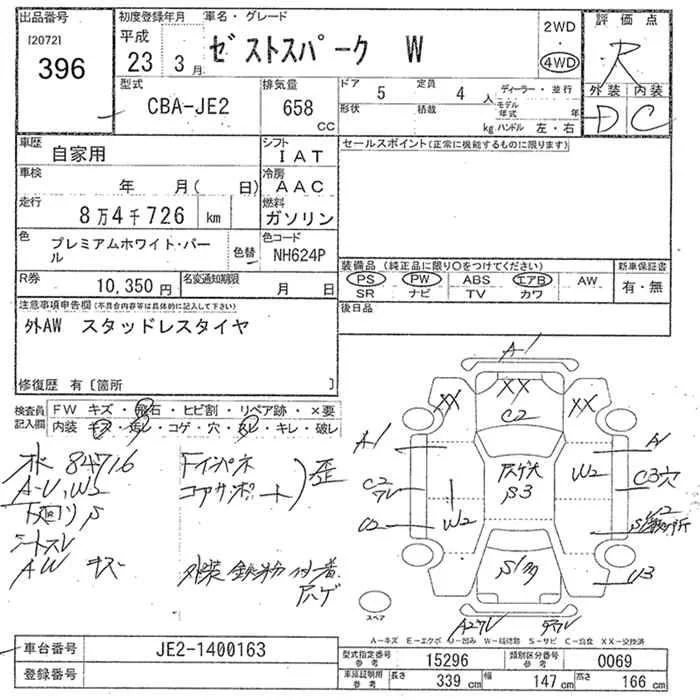 出品番号
[2072]
396
初度登録年月
平成
23年 3月
車名・グレード
ゼストスパーク W
2WD
4WD
評価点
R
外装 内装
D C
型式
CBA-JE2
排気量
658 cc
ドア 5
定員 4 人
形状
積載 kg
ディーラー・並行
モデル年式 年
ハンドル 左・右
車歴
自家用
シフト
IAT
車検
年 月( 日)
冷房
AAC
走行
8万4千726 km
燃料
ガソリン
色
プレミアムホワイト・パール
色替
色コード
NH624P
R券
10,350円
名変通知期限
月 日
セールスポイント(正常に機能するものに限ります)
装備品 (純正品に限り〇をつけてください)
PS PW ABS エアB AW
SR ナビ TV カワ
新車保証書
有・無
後日品
注意事項申告欄(不具合内容等は具体的に記入して下さい)
外AW スタッドレスタイヤ
修復歴 有〔箇所 〕
検査員記入欄
FW キズ・飛石・ヒビ割・リペア跡・×要
内装 キズ・汚レ・コゲ・穴・スレ・キレ・破レ
水 84716
A-U, W2
下廻りS
シートスレ
AW キズ
Fインパネ
コアサポート
歪
外装 鉄粉
A1
XX
C2
XX
XX
A1
A1
C2
W2
W2
S3
C3穴
U2
U3
スペア
A-キズ E-エクボ U-凹み W-補修跡 S-サビ C-腐食 XX-交換済
車台番号
JE2-1400163
登録番号
型式指定番号 参考
15296
類別区分番号 参考
0069
車庫証明用 参考
長さ 339 cm
幅 147 cm
高さ 166 cm